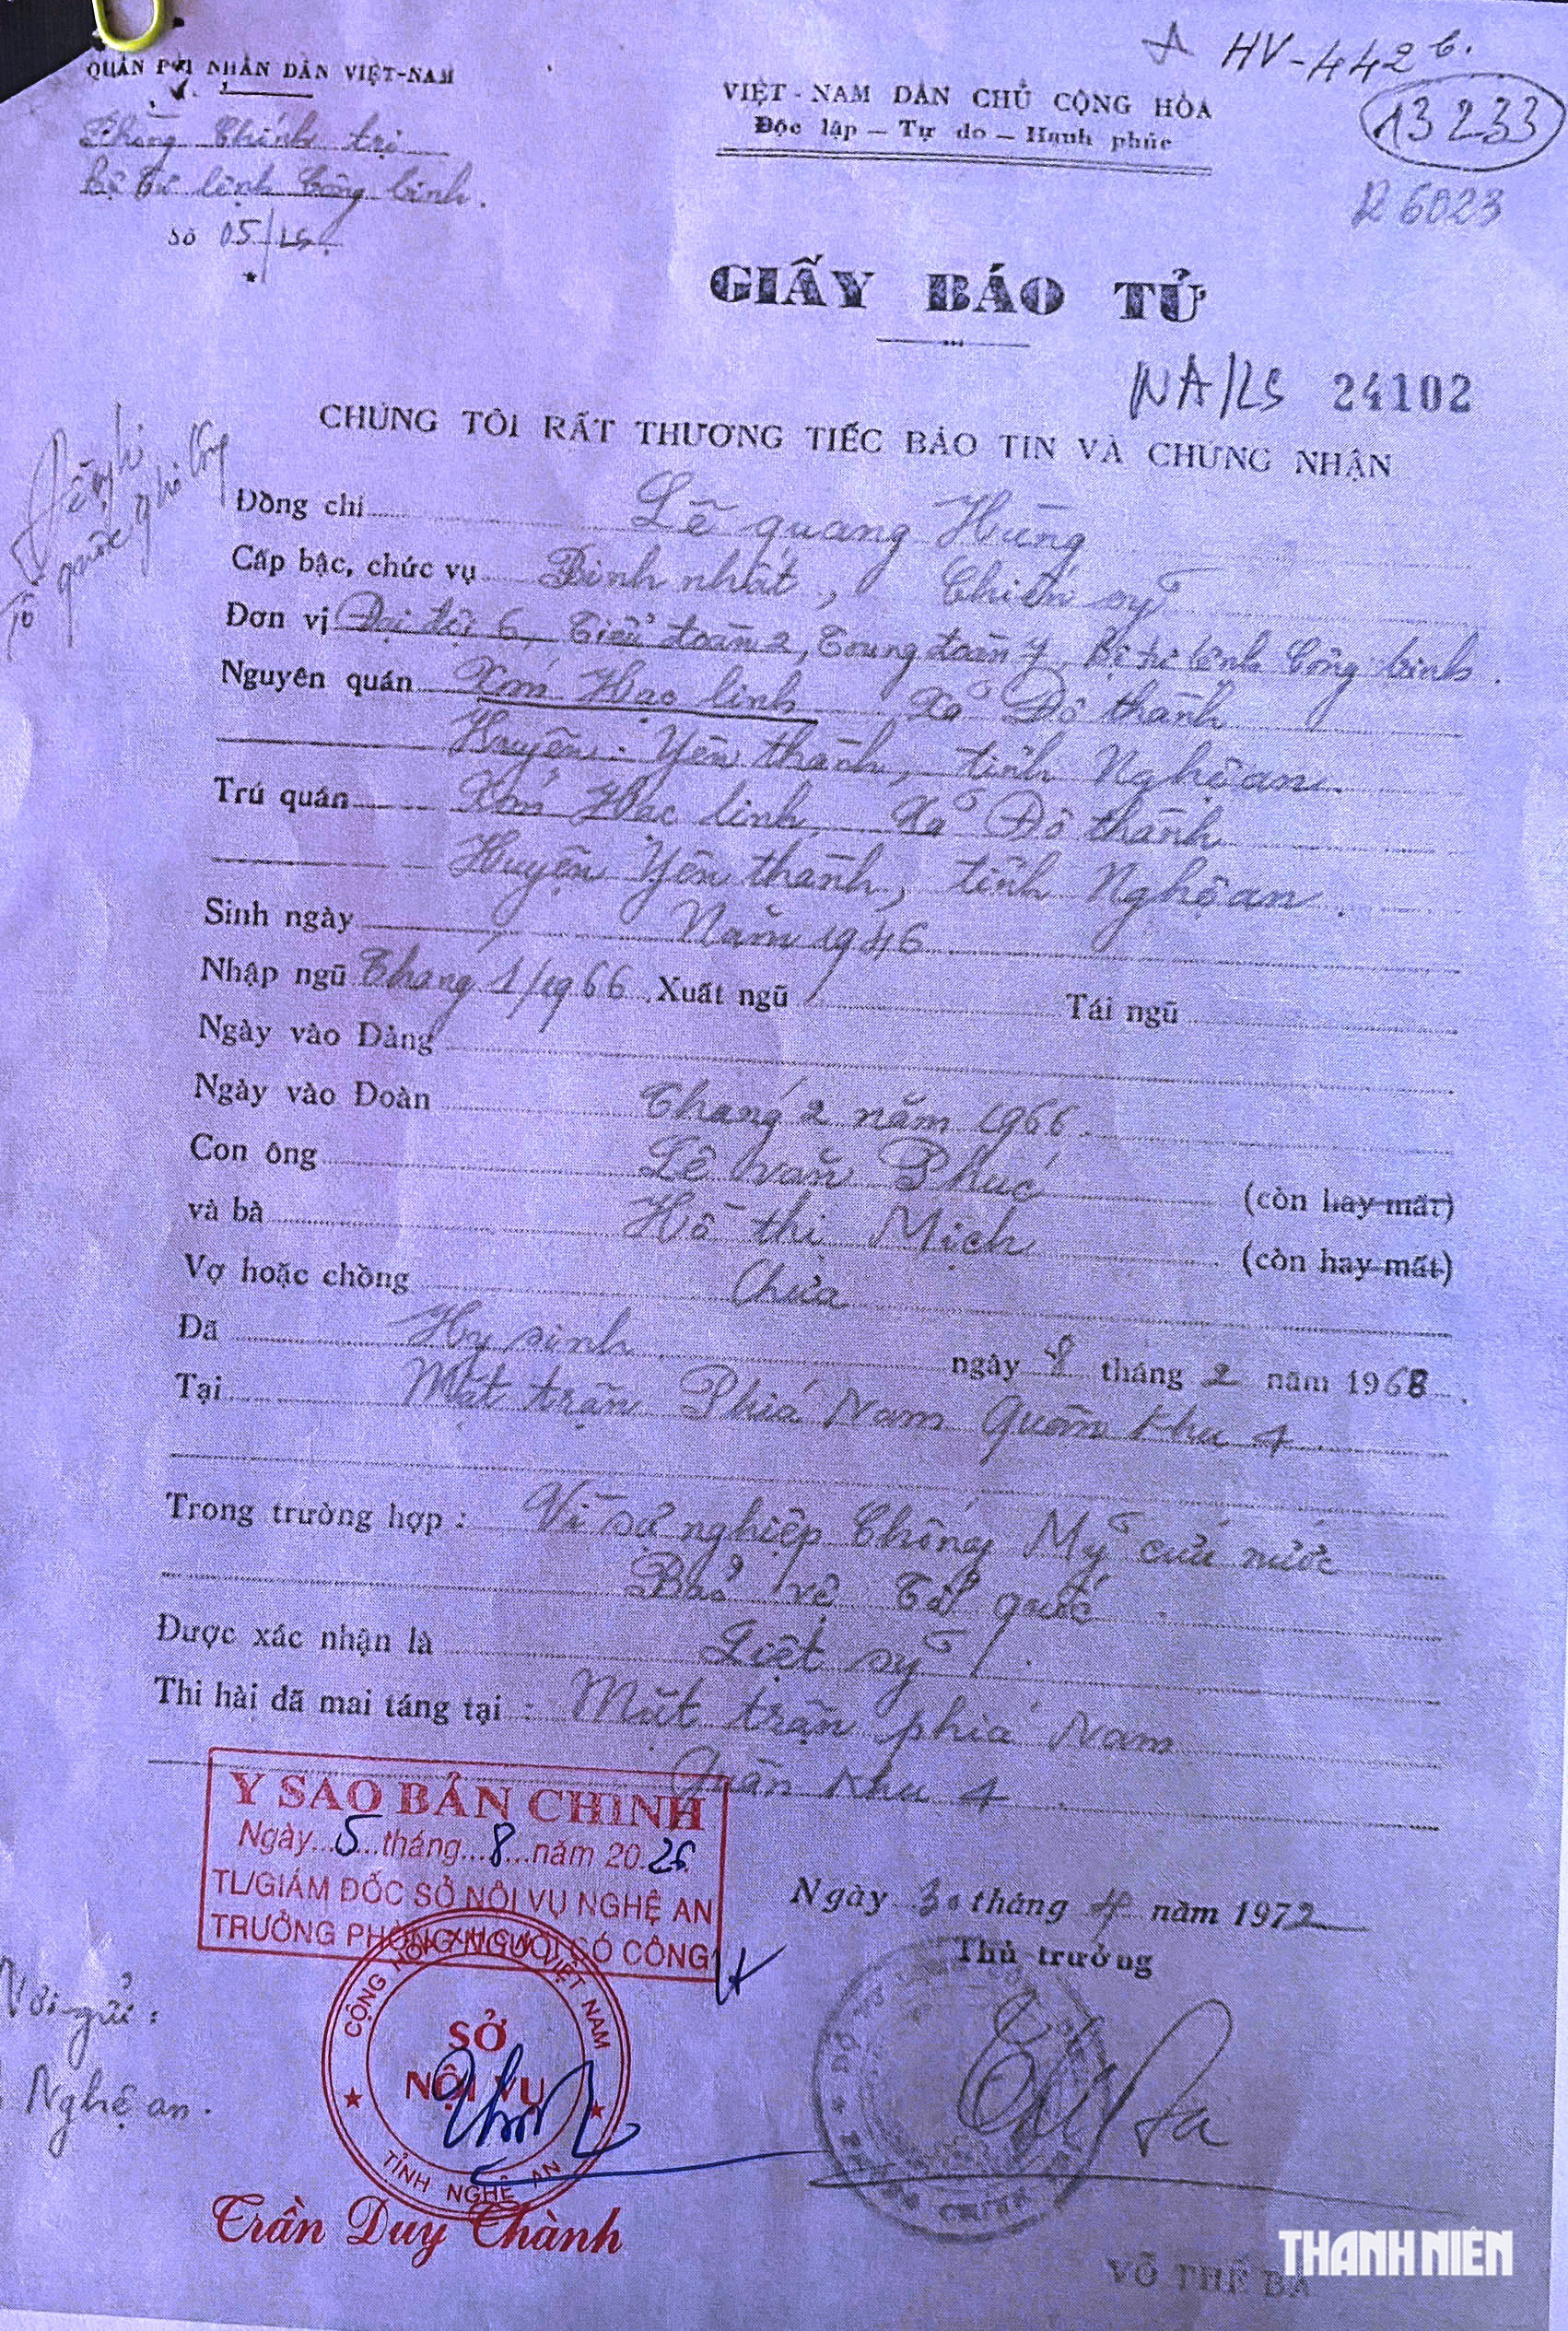 QUÂN ĐỘI NHÂN DÂN VIỆT-NAM
Phòng Chính trị
Bộ Tư lệnh Công binh.
Số 05/LS
VIỆT-NAM DÂN CHỦ CỘNG HÒA
Độc lập — Tự do — Hạnh phúc
HV-442
13233
R 6023
GIẤY BÁO TỬ
NA/LS 24102
CHÚNG TÔI RẤT THƯƠNG TIẾC BÁO TIN VÀ CHỨNG NHẬN
Đồng chí Lê quang Hùng
Cấp bậc, chức vụ Binh nhất, Chiến sỹ
Đơn vị Đại đội 6, Tiểu đoàn 2, Trung đoàn 7 Bộ tư lệnh Công binh.
Nguyên quán Xóm Hạc linh Xã Đô thành
Huyện: Yên thành, tỉnh Nghệ an.
Trú quán Xóm Hạc linh, Xã Đô thành
Huyện Yên thành, tỉnh Nghệ an.
Sinh ngày Năm 1946
Nhập ngũ Tháng 1/1966. Xuất ngũ Tái ngũ
Ngày vào Đảng
Ngày vào Đoàn Tháng 2 năm 1966.
Con ông Lê văn Phúc (còn hay mất)
và bà Hồ thị Mịch (còn hay mất)
Vợ hoặc chồng Chưa
Đã Hy sinh ngày 8 tháng 2 năm 1968
Tại Mặt trận Phía Nam Quân khu 4
Trong trường hợp: Vì sự nghiệp Chống Mỹ cứu nước
Bảo vệ Tổ quốc.
Được xác nhận là Liệt sỹ.
Thi hài đã mai táng tại: Mặt trận phía Nam
Quân khu 4
Y SAO BẢN CHÍNH
Ngày 5 tháng 8 năm 2026
TL/GIÁM ĐỐC SỞ NỘI VỤ NGHỆ AN
TRƯỞNG PHÒNG NGƯỜI CÓ CÔNG
Ngày 30 tháng 4 năm 1972
Thủ trưởng
CỘNG HÒA XHCN VIỆT NAM
SỞ
NỘI VỤ
TỈNH NGHỆ AN
Trần Duy Thành
Nơi gửi:
Nghệ an.
VÕ THẾ BA
THANH NIÊN